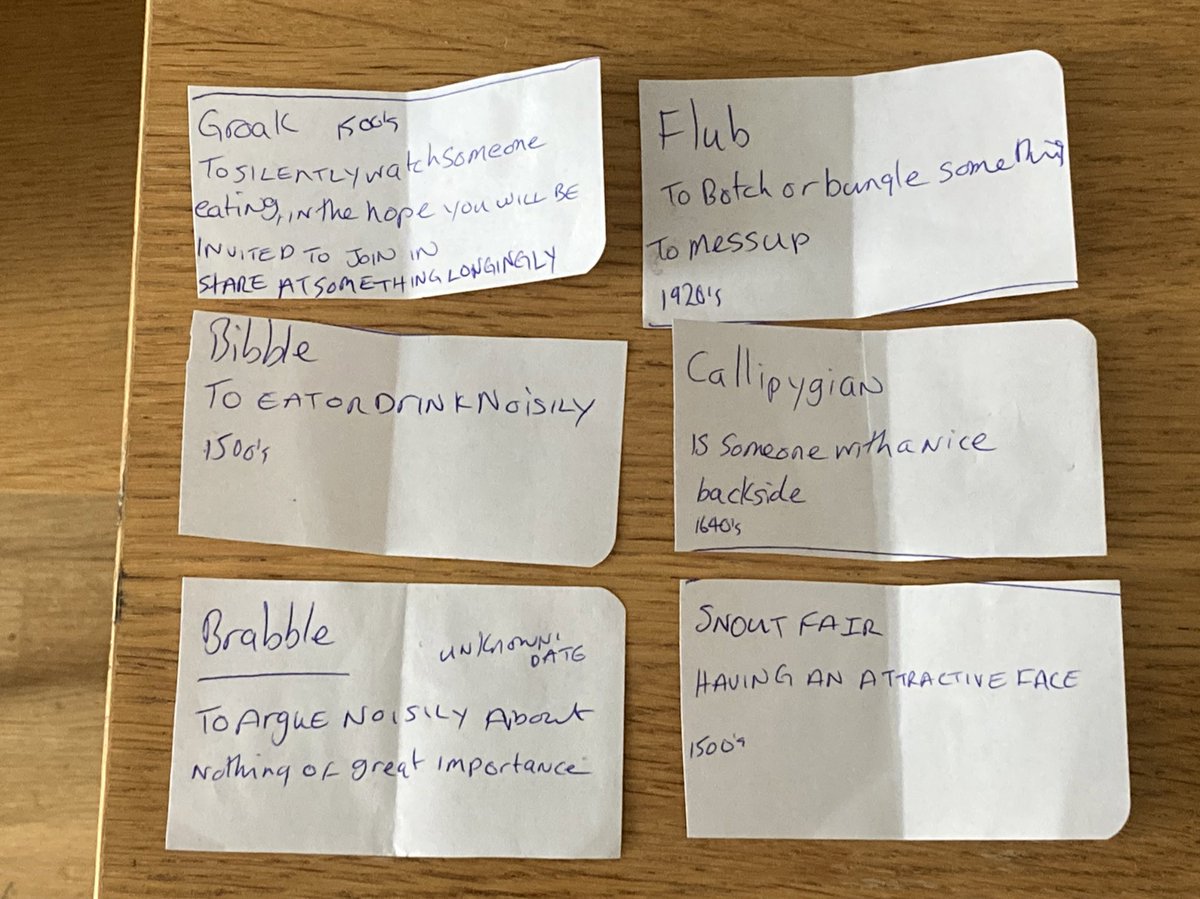 Groak 1500's
To SILENTLY watch someone
eating, in the hope you WILL BE
INVITED TO JOIN IN
STARE AT SOMETHING LONGINGLY
Flub
To Botch or bungle something
To mess up
1920's
Bibble
To EAT OR DRINK NOISILY
1500's
Callipygian
IS someone with a nice
backside
1640's
Brabble
UNKNOWN
DATE
To Argue NOISILY About
Nothing of great importance
SNOUT FAIR
HAVING AN ATTRACTIVE FACE
1500's